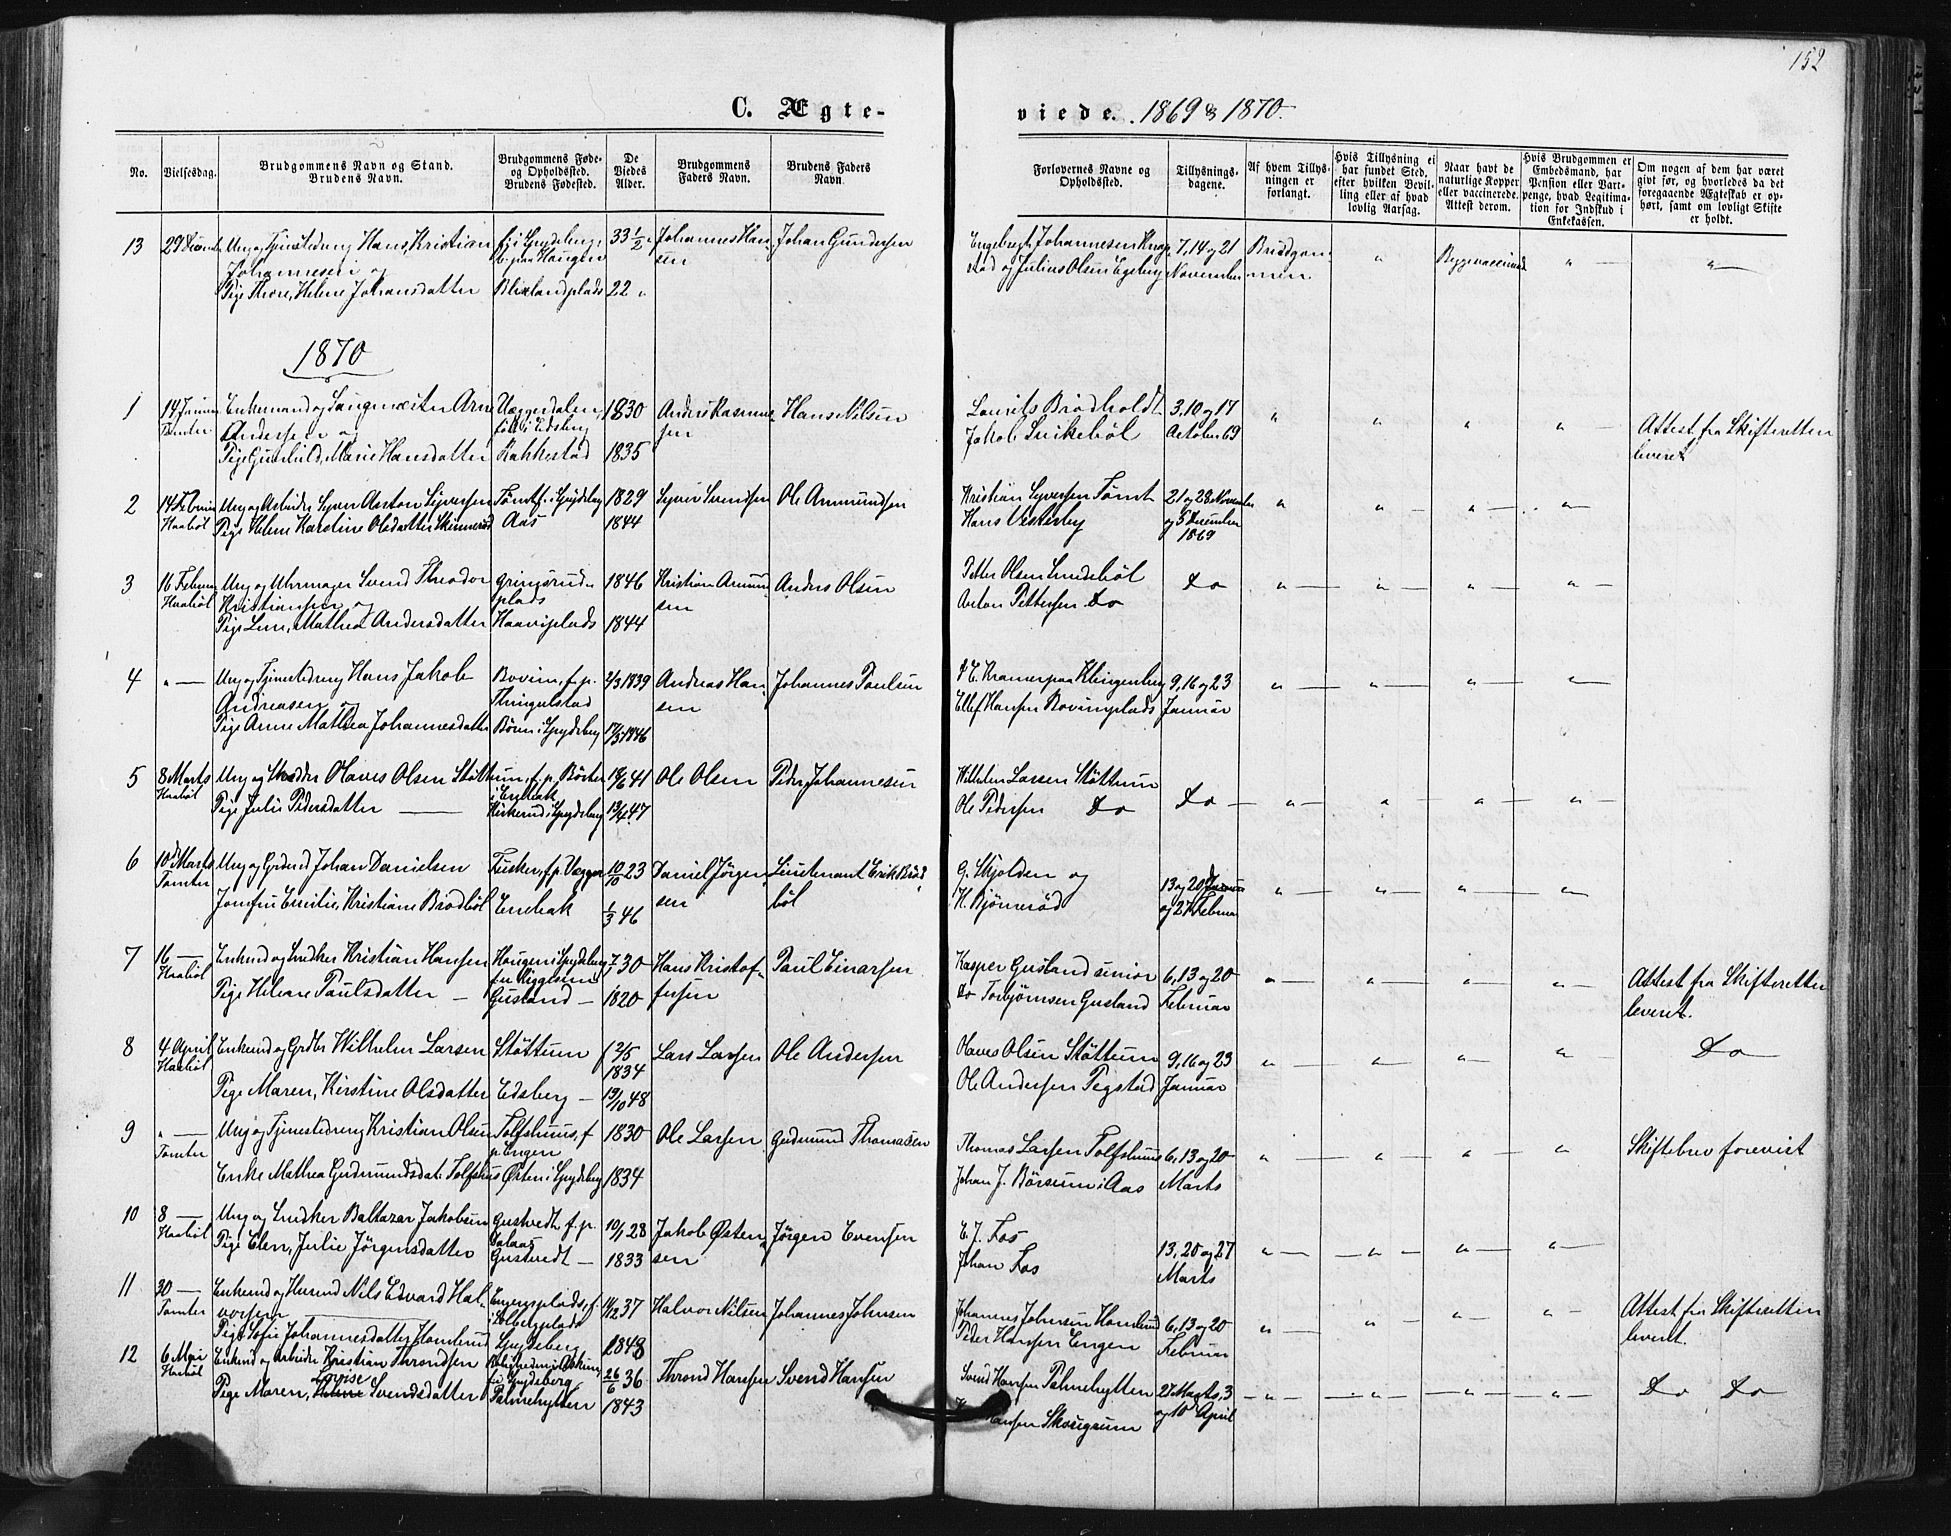 152
C. Ægte-
viede. 1869 & 1870.
No.
Vielsesdag.
Brudgommens Navn og Stand.
Brudens Navn.
Brudgommens Føde-
og Opholdssted.
Brudens Fødested.
De
Viedes
Alder.
Brudgommens
Faders Navn.
Brudens Faders
Navn.
Forlovernes Navne og
Opholdssted.
Tillysnings-
dagene.
Af hvem Tillys-
ningen er
forlangt.
Hvis Tillysning ei
har fundet Sted,
efter hvilken Bevil-
ling eller af hvad
lovlig Aarsag.
Naar havt de
naturlige Kopper
eller vaccinerede.
Attest derom.
Hvis Brudgommen er
Embedsmand, har
Pension eller Vart-
penge, hvad Legitima-
tion for Indskud i
Enkekassen.
Om nogen af dem har været
givt før, og hvorledes da det
foregaaende Ægteskab er op-
hørt, samt om lovligt Skifte
er holdt.
13
Ung og Tjenestedreng Hans Kristian
Johannesen og
Pige Thore, Helene Johansdatter
f. i Spydeberg,
b. paa Haugen
Blixlandplads
33 1/2
22
Johannes Han-
sen
Johan Gundersen
Engebregt Johannesen Knap-
stad og Julius Olsen Egeberg
7, 14 og 21
November
Brudgom-
men
Begge vaccinered
1870
1
14 Januar
Tomter
Enkemand og Saugmester Arne
Andersen og
Pige Gunhild, Marie Hansdatter
Væggerdalen,
født i Edsberg
Rakkestad
1830
1835
Anders Rasmus-
sen
Hans Nilsen
Laurits Brødholdt
Jakob Svikebøl
3, 10 og 17
October 69
Attest fra Skifteretten
leveret
2
14 Februar
Haabøl
Ung og Arbeider Syver Anton Syversen
Pige Helene Karstine Olsdatter Skinnerud
Tomt f. i Spydeberg
Aas
1829
1844
Syver Svendsen
Ole Ammundsen
Kristian Syversen Tomt
Hans Vesterby
21 og 28 November
og 5 December
1869
3
16 Februar
Haabøl
Ung og Uhrmager Svend Theodor
Kristiansen og
Pige Line, Mathea Andersdatter
Gringsrud-
plads
Haaviplads
1846
1844
Kristian Amund-
sen
Anders Olsen
Petter Olsen Smedsbøl
Anton Pettersen Do
Do
4
Ung og Tjenestedreng Hans Jakob
Andreasen og
Pige Anne Mathea Johannesdatter
Bovim, f. p.
Thingulstad
Børen i Spydeberg
2/3 1839
17/3 1846
Andreas Han-
sen
Johannes Poulsen
Kramer paa Klingenberg
Ellef Hansen Bovimplads
9, 16 og 23
Januar
5
8 Marts
Haabøl
Ung og Skrædder Haves Olsen Støttum, f. p. Børter
i Enebak
Pige Julie Pedersdatter
Kirkerud i Spydeberg
18/6 41
13/4 47
Ole Olsen
Peder Johannesen
Wilhelm Larsen Støttum
Ole Pedersen Do
Do
6
10 Marts
Tomter
Ung og Grdmd Johan Danielsen
Jomfru Emilie, Kristiane Brødbøl
Tusker, f. p. Vegger
Enebak
10/10 23
1/3 46
Daniel Jørgen-
sen
Lieutenant Erik Brød-
bøl
G. Skjolden og
H. Bjørnerød
13 og 20
og 27 Februar
7
16
Haabøl
Enkemd og Snedker Kristian Hansen
Pige Helene Paulsdatter
Haugen i Spydeberg
Gusland
30
1820
Hans Kristof-
fersen
Paul Einarsen
Kasper Gusland senior
Do Torbjørnsen Gusland
6, 13 og 20
Februar
Attest fra Skifteretten
leveret.
8
4 April
Haabøl
Enkemd og Grdbr Wilhelm Larsen
Pige Maren, Kirstine Olsdatter
Støttum
Edsberg
12/5
1834
19/10 48
Lars Larsen
Ole Andersen
Haves Olsen Støttum
Ole Andersen Tegstad
9, 16 og 23
Januar
Do
9
Tomter
Ung og Tjenestedreng Kristian Olsen
Enke Mathea Gudmundsdat. Tolfshus
Tolfshuus, f.
p. Engen
Østen i Spydeberg
1830
1834
Ole Larsen
Gudmund Thomassen
Thomas Larsen Tolfshuus
Johan J. Børsum i Aas
6, 13 og 20
Marts
Skiftebrev forevist
10
8
Haabøl
Ung og Snedker Baltazar Jakobsen
Pige Elen, Julie Jørgensdatter
Gustvedt f. p.
Dalaas
Gustvedt
10/1 28
1833
Jakob Østen-
sen
Jørgen Evensen
E. J. Fos
Johan Fos
13, 20 og 27
Marts
11
30
Tomter
Enkemd og Husmd Nils Edvard Hal-
vorsen
Pige Sofie Johannesdatter Hamlund
Engensplads, f.
Spydeberg
14/12 37
1848
Halvor Nilsen
Johannes Johnsen
Johannes Johnsen Hamlund
Peder Hansen Engen
6, 13 og 20
Februar
Attest fra Skifteretten
leveret.
12
6 Mai
Haabøl
Enkemd og Arbeider Kristian Throndsen
Lovise
Pige Maren, Helene Svendsdatter
Spydeberg
Palmehytten
26/6 36
1843
Thrond Hansen
Svend Hansen
Svend Hansen Palmehytten
Hansen Skougrum
27 Marts, 3
og 10 April
Do Do